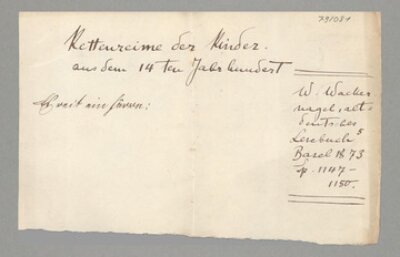 791081
Kettenreime der Kinder.
aus dem 14ten Jahrhundert
Es reit ein herre:
W. Wacker
nagel, alt-
deutsches
Lesebuch 5
Basel 1873
Sp. 1147-
1150.